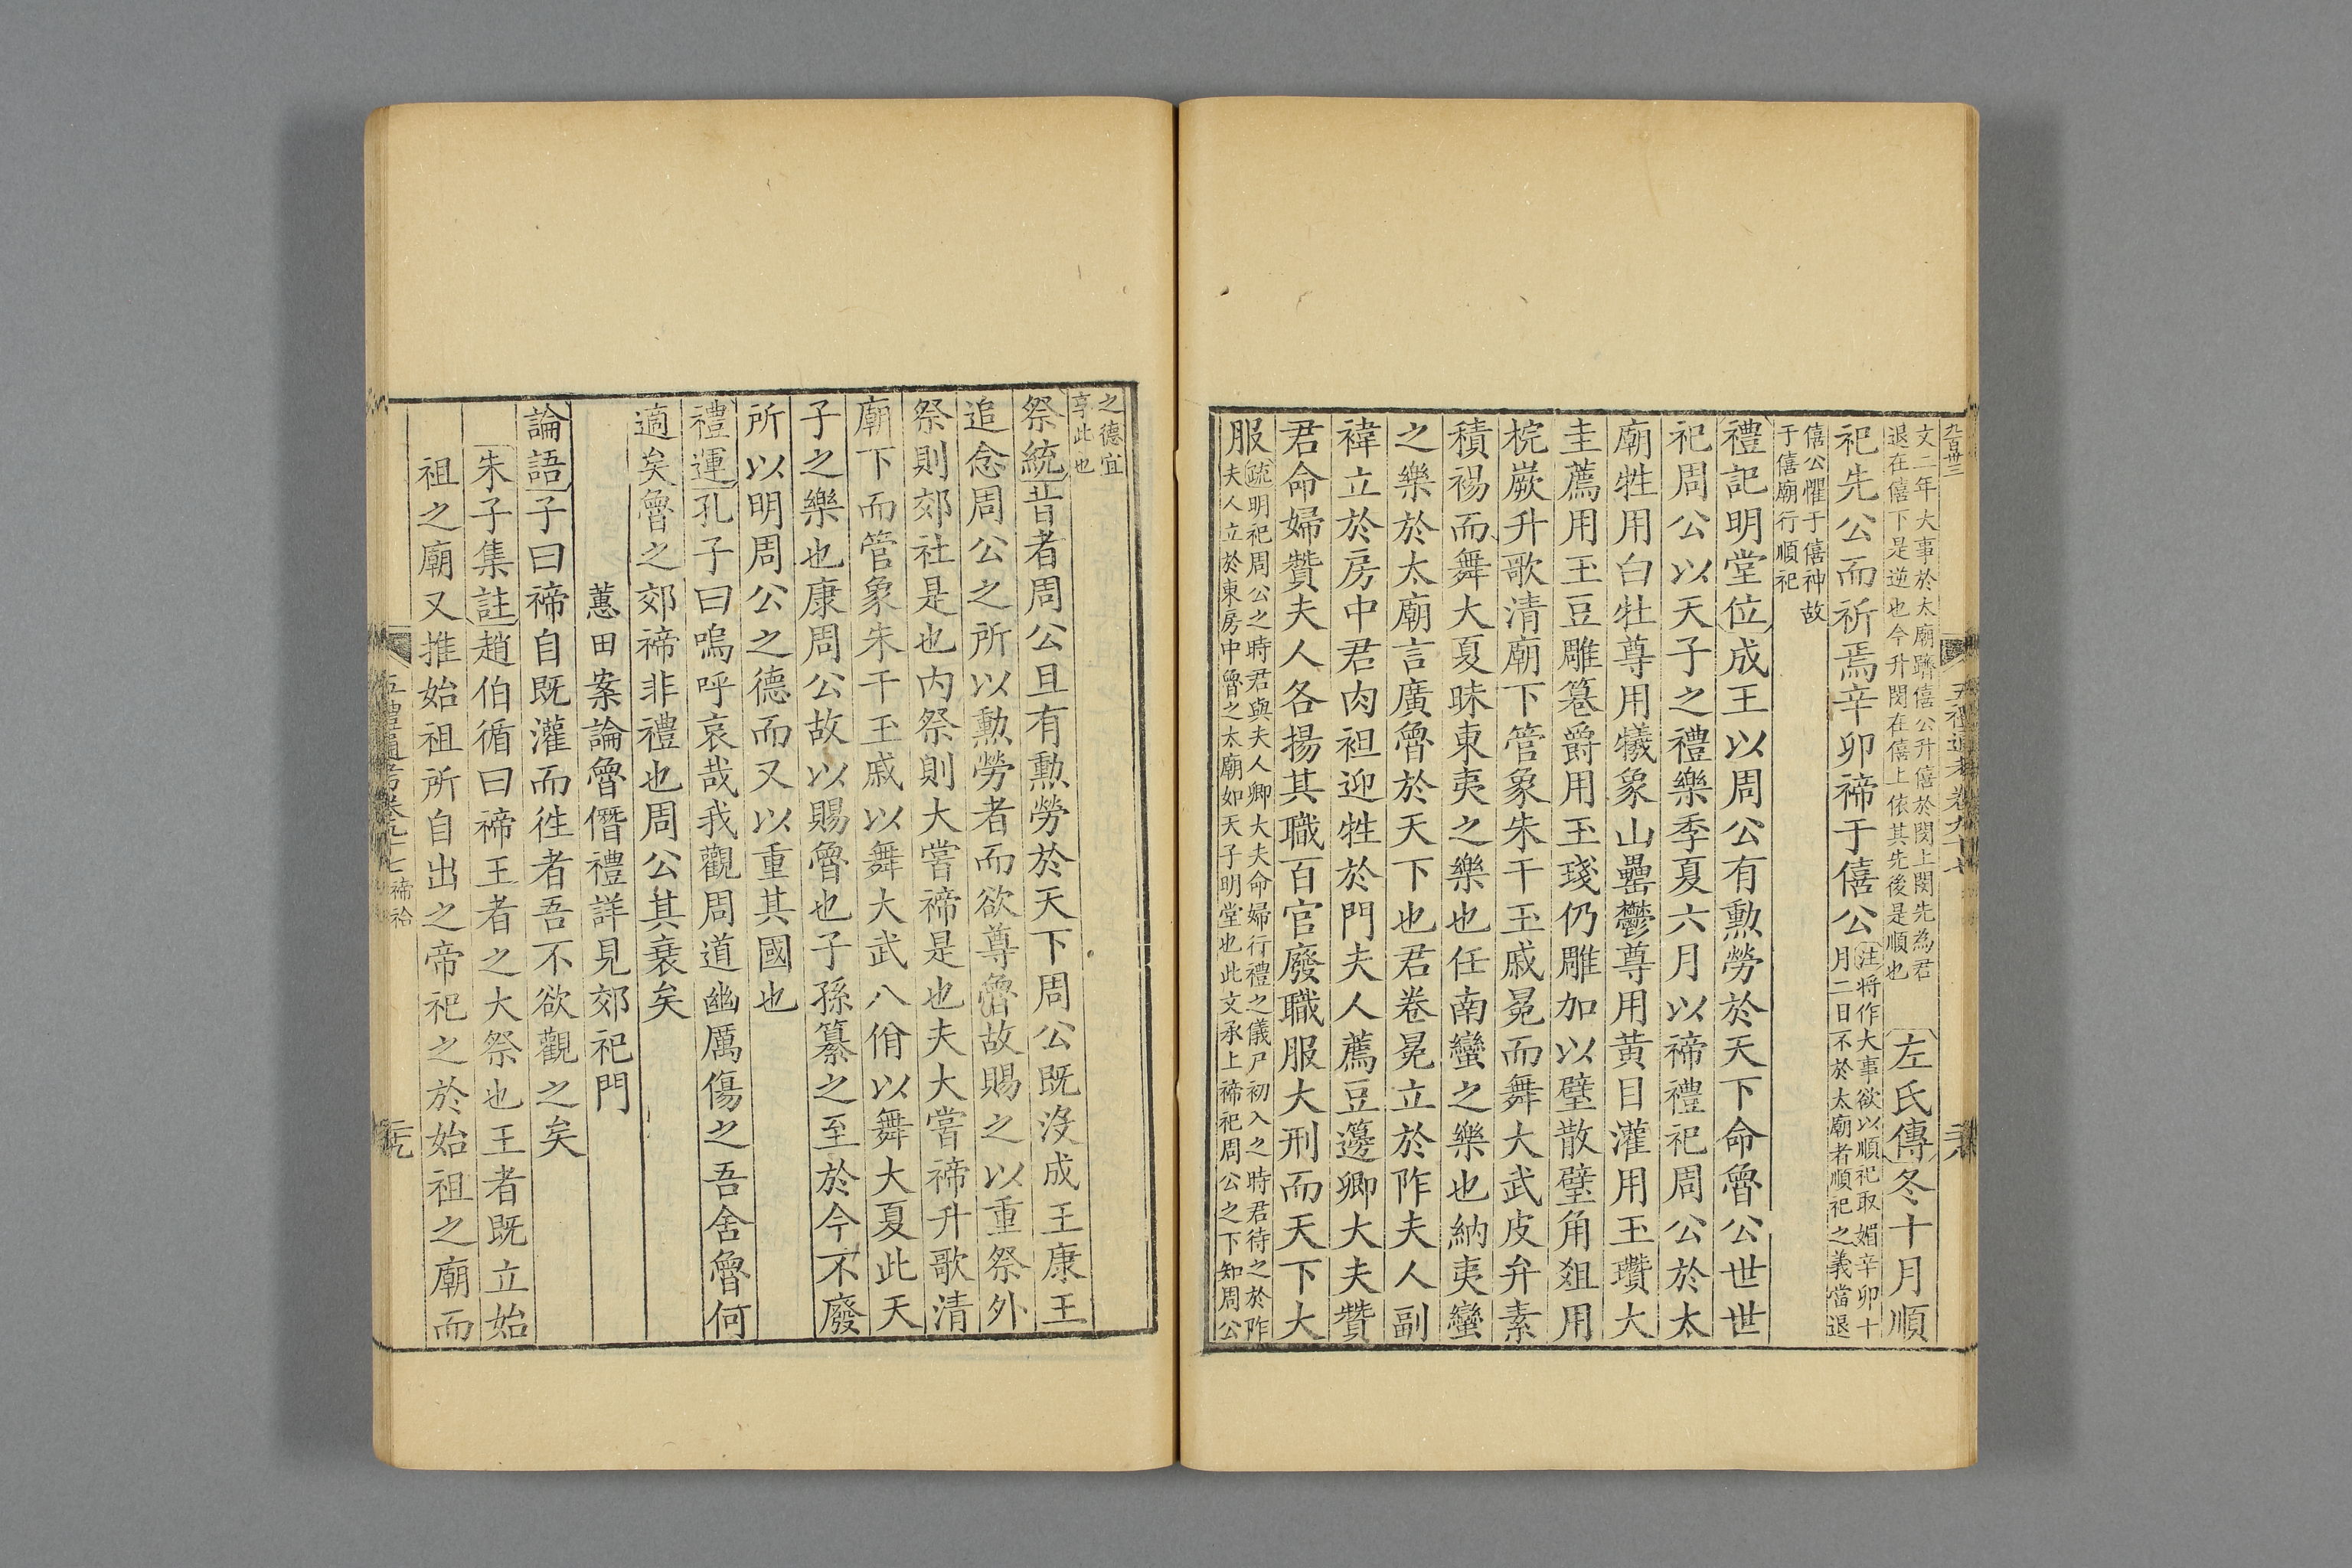 九百卅三
五禮通考卷九十七
文二年大事於太廟躋僖公升僖於閔上閔先為君
退在僖下是逆也今升閔在僖上依其先後是順也
左氏傳冬十月順
祀先公而祈焉辛卯禘于僖公
注將作大事欲以順祀取媚辛卯十
月二日不於太廟者順祀之義當退
僖公懼于僖神故
于僖廟行順祀
禮記明堂位成王以周公有勲勞於天下命魯公世世
祀周公以天子之禮樂季夏六月以禘禮祀周公於太
廟牲用白牡尊用犧象山罍鬱尊用黃目灌用玉瓚大
圭薦用玉豆雕篹爵用玉琖仍雕加以璧散璧角爼用
梡嶡升歌清廟下管象朱干玉戚冕而舞大武皮弁素
積裼而舞大夏昧東夷之樂也任南蠻之樂也納夷蠻
之樂於太廟言廣魯於天下也君卷冕立於阼夫人副
褘立於房中君肉袒迎牲於門夫人薦豆籩卿大夫贊
君命婦贊夫人各揚其職百官廢職服大刑而天下大
服
疏明祀周公之時君與夫人卿大夫命婦行禮之儀尸初入之時君待之於阼
夫人立於東房中魯之太廟如天子明堂也此文承上禘祀周公之下知周公
之德宜
享此也
祭統昔者周公旦有勲勞於天下周公既沒成王康王
追念周公之所以勲勞者而欲尊魯故賜之以重祭外
祭則郊社是也内祭則大嘗禘是也夫大嘗禘升歌清
廟下而管象朱干玉戚以舞大武八佾以舞大夏此天
子之樂也康周公故以賜魯也子孫纂之至於今不廢
所以明周公之德而又以重其國也
禮運孔子曰嗚呼哀哉我觀周道幽厲傷之吾舍魯何
適矣魯之郊禘非禮也周公其衰矣
蕙田案論魯僭禮詳見郊祀門
論語子曰禘自既灌而徃者吾不欲觀之矣
朱子集註趙伯循曰禘王者之大祭也王者既立始
祖之廟又推始祖所自出之帝祀之於始祖之廟而
五禮通考卷九十七 禘祫